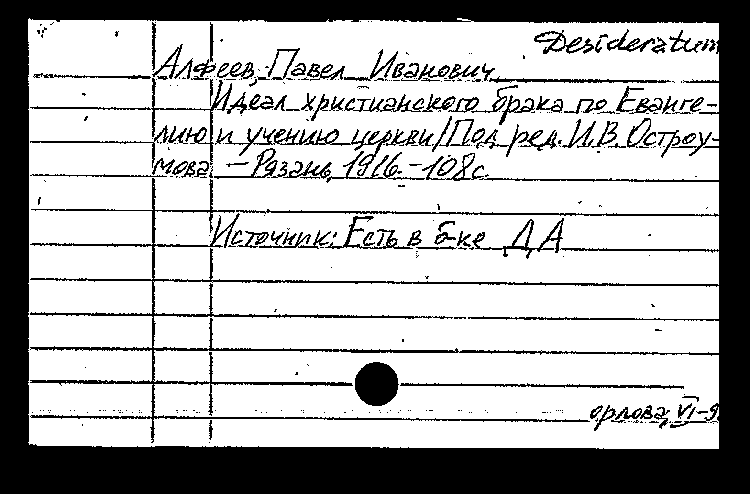 Desideratum
Алфеев, Павел Иванович.
Идеал христианского брака по Еванге-
лию и учению церкви/Под ред. И.В. Остроу-
мова. – Рязань, 1916. – 108с.
Источник: Есть в б-ке ДА
орлова, VI-9